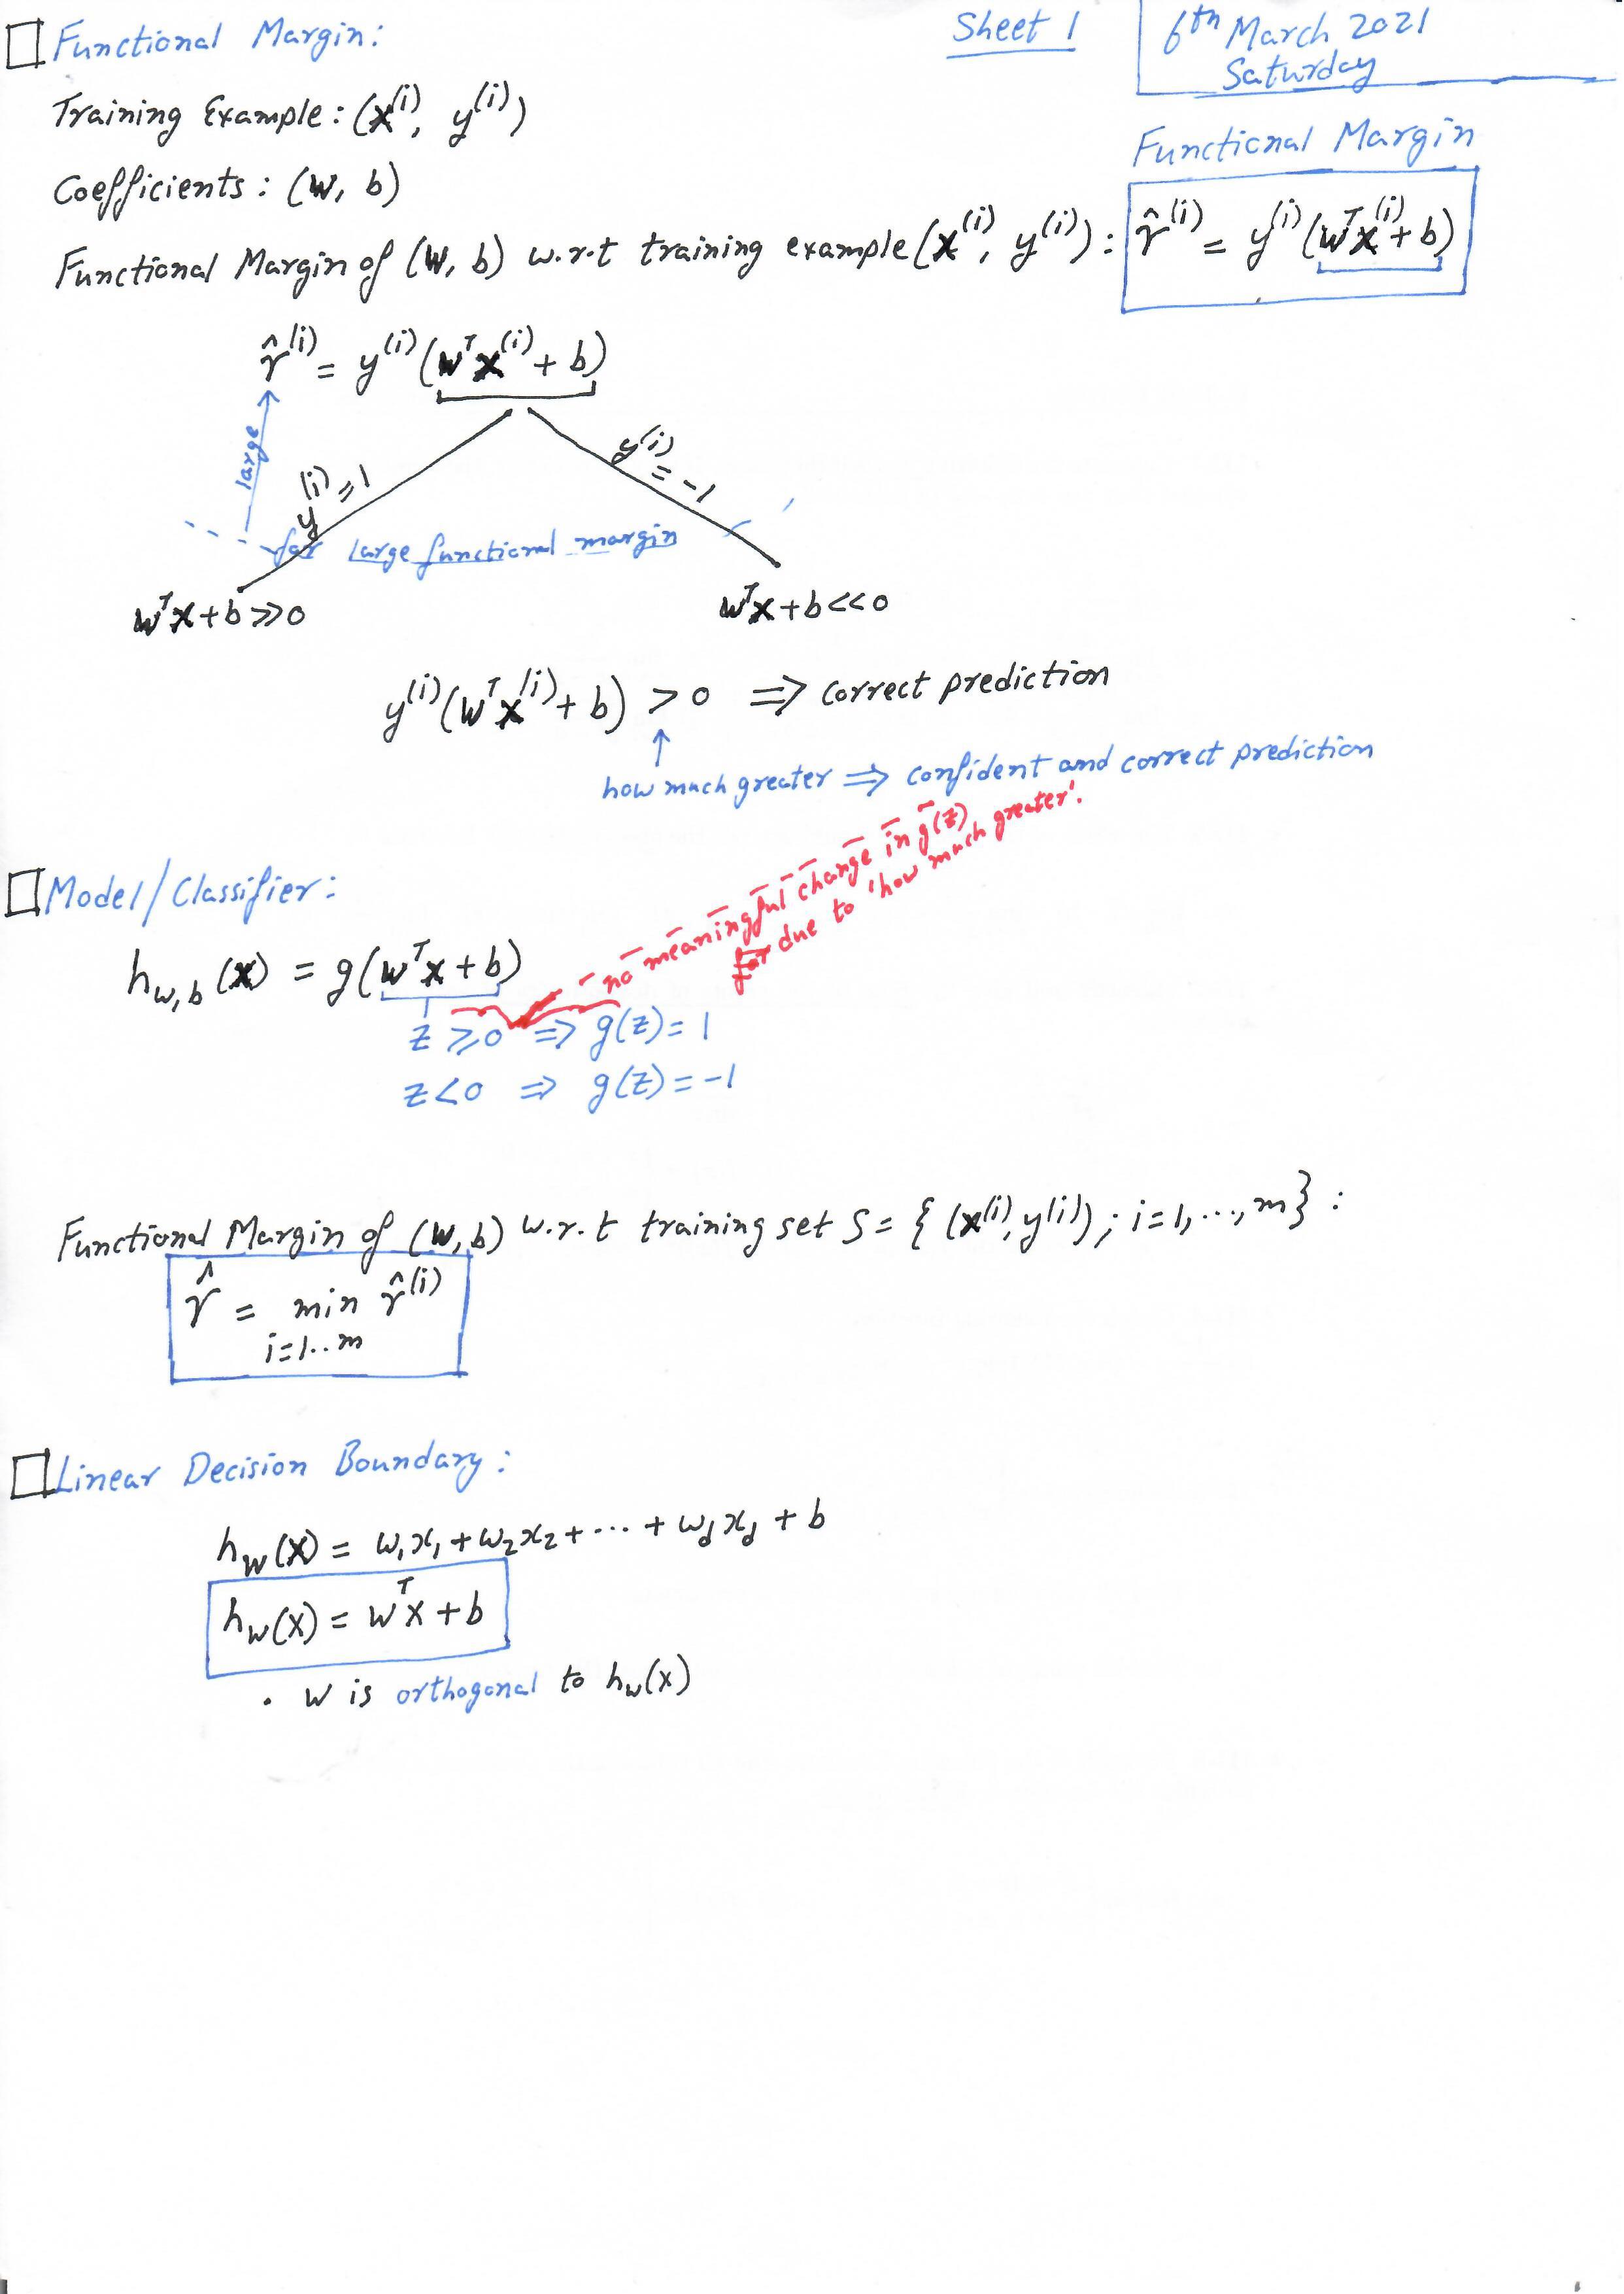 Functional Margin:
Sheet 1
6th March 2021
Saturday
Training Example: (x^(i), y^(i))
Functional Margin
Coefficients: (w, b)
Functional Margin of (w, b) w.r.t training example (x^(i), y^(i)): γ̂^(i) = y^(i)(w^T x^(i) + b)
γ̂^(i) = y^(i)(w^T x^(i) + b)
large
y^(i) = 1
y^(i) = -1
for large functional margin
w^T x + b >> 0
w^T x + b << 0
y^(i)(w^T x^(i) + b) > 0 ⇒ correct prediction
↑
how much greater ⇒ confident and correct prediction
no meaningful change in g(z)
due to 'how much greater'.
Model/Classifier:
h_w,b (x) = g(w^T x + b)
z ≥ 0 ⇒ g(z) = 1
z < 0 ⇒ g(z) = -1
Functional Margin of (w, b) w.r.t training set S = { (x^(i), y^(i)); i=1, ..., m} :
γ̂ = min γ̂^(i)
i=1..m
Linear Decision Boundary:
h_w(x) = w_1x_1 + w_2x_2 + ... + w_dx_d + b
h_w(x) = w^T x + b
. w is orthogonal to h_w(x)